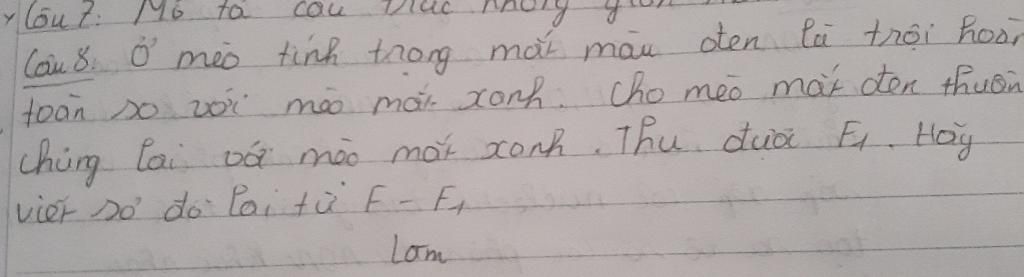 Câu 7: Mô tả cấu trúc không gian
Câu 8. Ở mèo tính trạng mắt màu đen là trội hoàn
toàn so với mèo mắt xanh. Cho mèo mắt đen thuần
chủng lai với mèo mắt xanh. Thu được F1. Hãy
viết sơ đồ lai từ F - F1
Làm